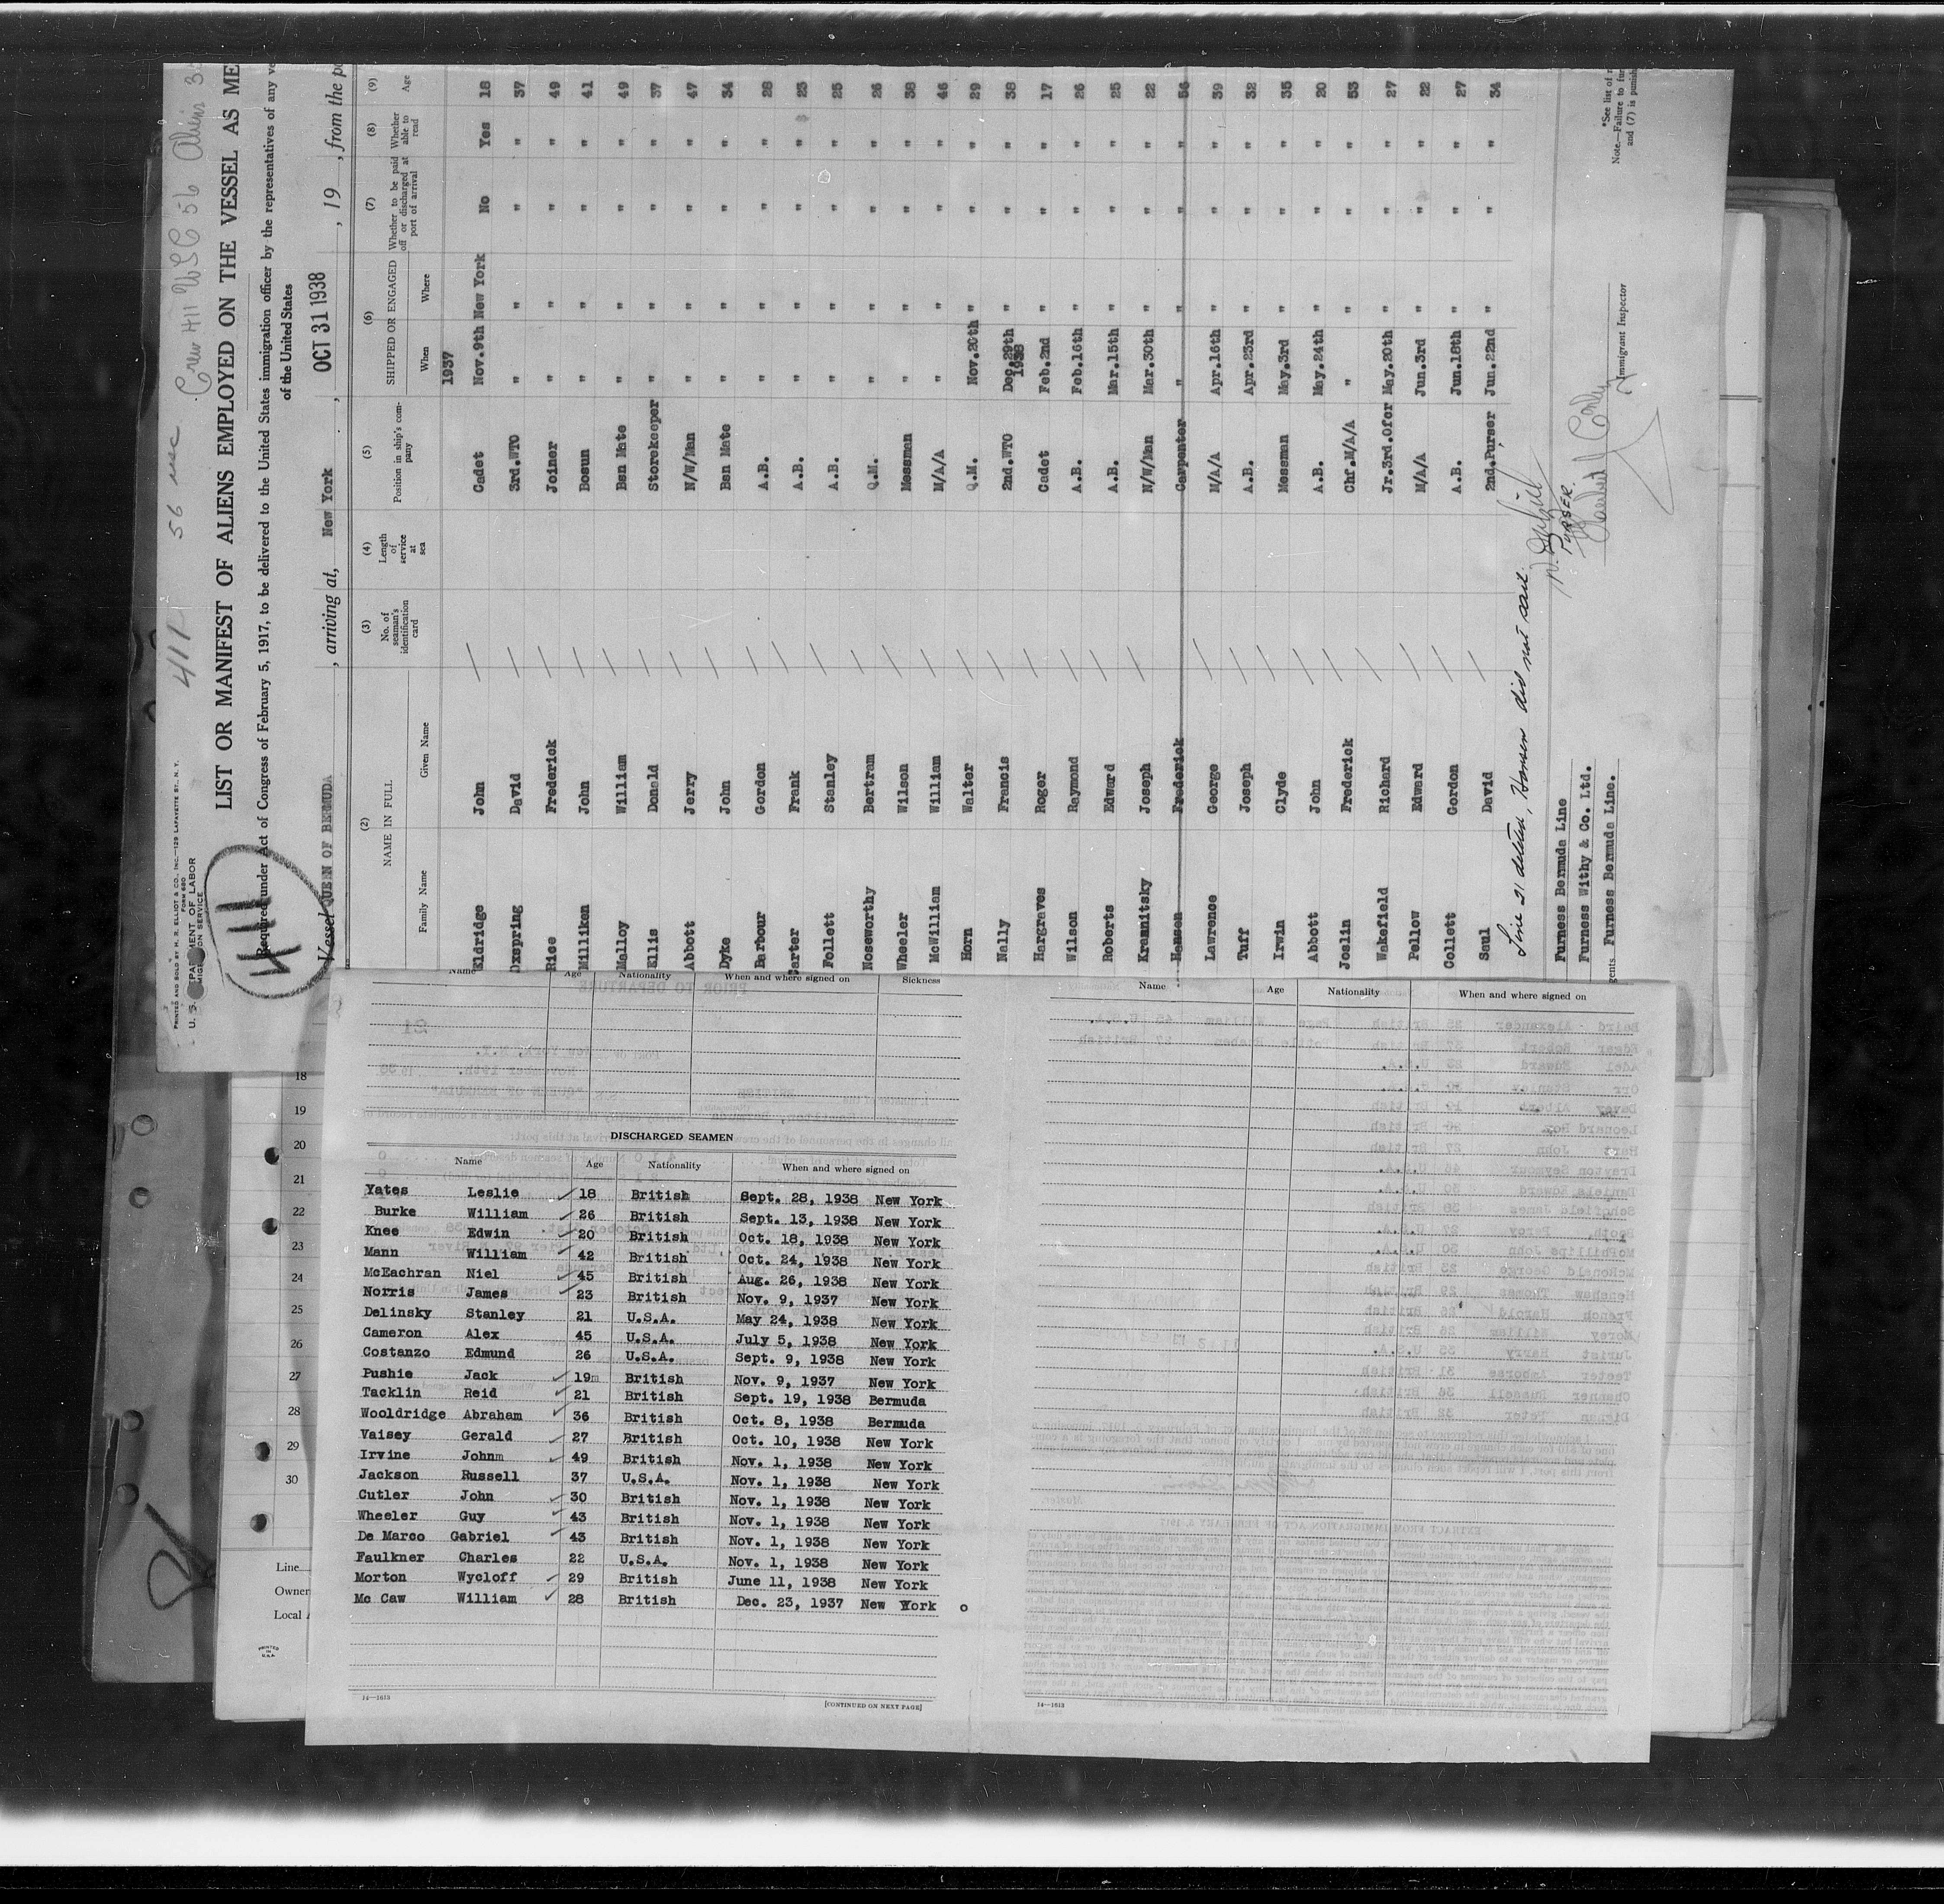 411A 56 usc Crew 411 USC 56 Alien 3
PRINTED AND SOLD BY H. R. ELLIOT & CO., INC.—129 LAFAYETTE ST., N. Y.
FORM 680
U. S. DEPARTMENT OF LABOR
IMMIGRATION SERVICE
411
LIST OR MANIFEST OF ALIENS EMPLOYED ON THE VESSEL AS ME
Required under Act of Congress of February 5, 1917, to be delivered to the United States immigration officer by the representatives of any ve
of the United States
Vessel QUEEN OF BERMUDA, arriving at, New York, OCT 31 1938, 19, from the po
(2) (3) (4) (5) (6) (7) (8) (9)
NAME IN FULL No. of seaman's identification card Length of service at sea Position in ship's company SHIPPED OR ENGAGED Whether to be paid off or discharged at port of arrival Whether able to read Age
Family Name Given Name When Where
1937
Eldridge John Cadet Nov.9th New York No Yes 18
Oxspring David 3rd.WTO " " " " 37
Rice Frederick Joiner " " " " 49
Milliken John Bosun " " " " 41
Malloy William Bsn Mate " " " " 49
Ellis Donald Storekeeper " " " " 37
Abbott Jerry N/W/Man " " " " 47
Dyke John Bsn Mate " " " " 34
Barbour Gordon A.B. " " " " 28
Carter Frank A.B. " " " " 23
Follett Stanley A.B. " " " " 25
Noseworthy Bertram Q.M. " " " " 26
Wheeler Wilson Messman " " " " 38
McWilliam William M/A/A " " " " 46
Horn Walter Q.M. Nov.20th " " " 29
Nally Francis 2nd.WTO Dec.29th " " " 38
1938
Hargraves Roger Cadet Feb.2nd " " " 17
Wilson Raymond A.B. Feb.16th " " " 26
Roberts Edward A.B. Mar.15th " " " 25
Kramnitsky Joseph N/W/Man Mar.30th " " " 22
Hansen Frederick Carpenter " " " " 54
Lawrence George M/A/A Apr.16th " " " 39
Tuff Joseph A.B. Apr.23rd " " " 32
Irwin Clyde Messman May.3rd " " " 35
Abbott John A.B. May.24th " " " 20
Joslin Frederick Chf.M/A/A " " " " 53
Wakefield Richard Jr.3rd.Ofer May.20th " " " 27
Pellow Edward M/A/A Jun.3rd " " " 22
Collett Gordon A.B. Jun.18th " " " 27
Saul David 2nd.Purser Jun.22nd " " " 34
Line 21 deleted, Hansen did not sail.
PURSER.
Furness Bermuda Line
Furness Withy & Co. Ltd.
gents Furness Bermuda Line.
Immigrant Inspector
*See list of r
Note.—Failure to fur
and (7) is punish
18
19
20
21
22
23
24
25
26
27
28
29
30
Line
Owner
Local A
PRINTED IN U.S.A.
Name Age Nationality When and where signed on Sickness
DISCHARGED SEAMEN
Name Age Nationality When and where signed on
Yates Leslie 18 British Sept. 28, 1938 New York
Burke William 26 British Sept. 13, 1938 New York
Knee Edwin 20 British Oct. 18, 1938 New York
Mann William 42 British Oct. 24, 1938 New York
McEachran Niel 45 British Aug. 26, 1938 New York
Norris James 23 British Nov. 9, 1937 New York
Delinsky Stanley 21 U.S.A. May 24, 1938 New York
Cameron Alex 45 U.S.A. July 5, 1938 New York
Costanzo Edmund 26 U.S.A. Sept. 9, 1938 New York
Pushie Jack 19m British Nov. 9, 1937 New York
Tacklin Reid 21 British Sept. 19, 1938 Bermuda
Wooldridge Abraham 36 British Oct. 8, 1938 Bermuda
Vaisey Gerald 27 British Oct. 10, 1938 New York
Irvine Johnm 49 British Nov. 1, 1938 New York
Jackson Russell 37 U.S.A. Nov. 1, 1938 New York
Cutler John 30 British Nov. 1, 1938 New York
Wheeler Guy 43 British Nov. 1, 1938 New York
De Marco Gabriel 43 British Nov. 1, 1938 New York
Faulkner Charles 22 U.S.A. Nov. 1, 1938 New York
Morton Wycloff 29 British June 11, 1938 New York
Mc Caw William 28 British Dec. 23, 1937 New York
14—1613
[CONTINUED ON NEXT PAGE]
Name Age Nationality When and where signed on
14—1613